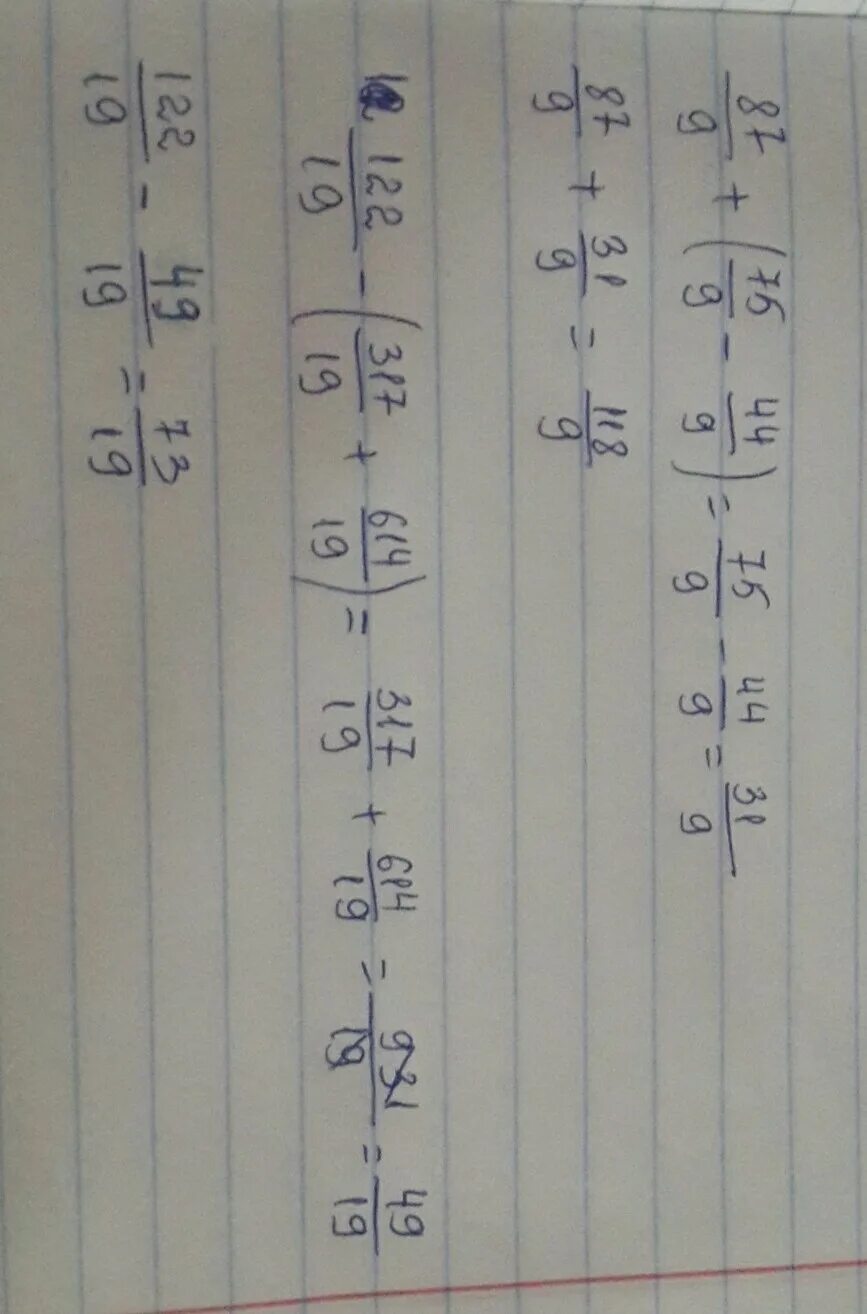 87/9 + (75/9 - 44/9) = 75/9 - 44/9 = 31/9
87/9 + 31/9 = 118/9
122/19 - (317/19 + 614/19) = 317/19 + 614/19 = 931/19 = 49/19
122/19 - 49/19 = 73/19